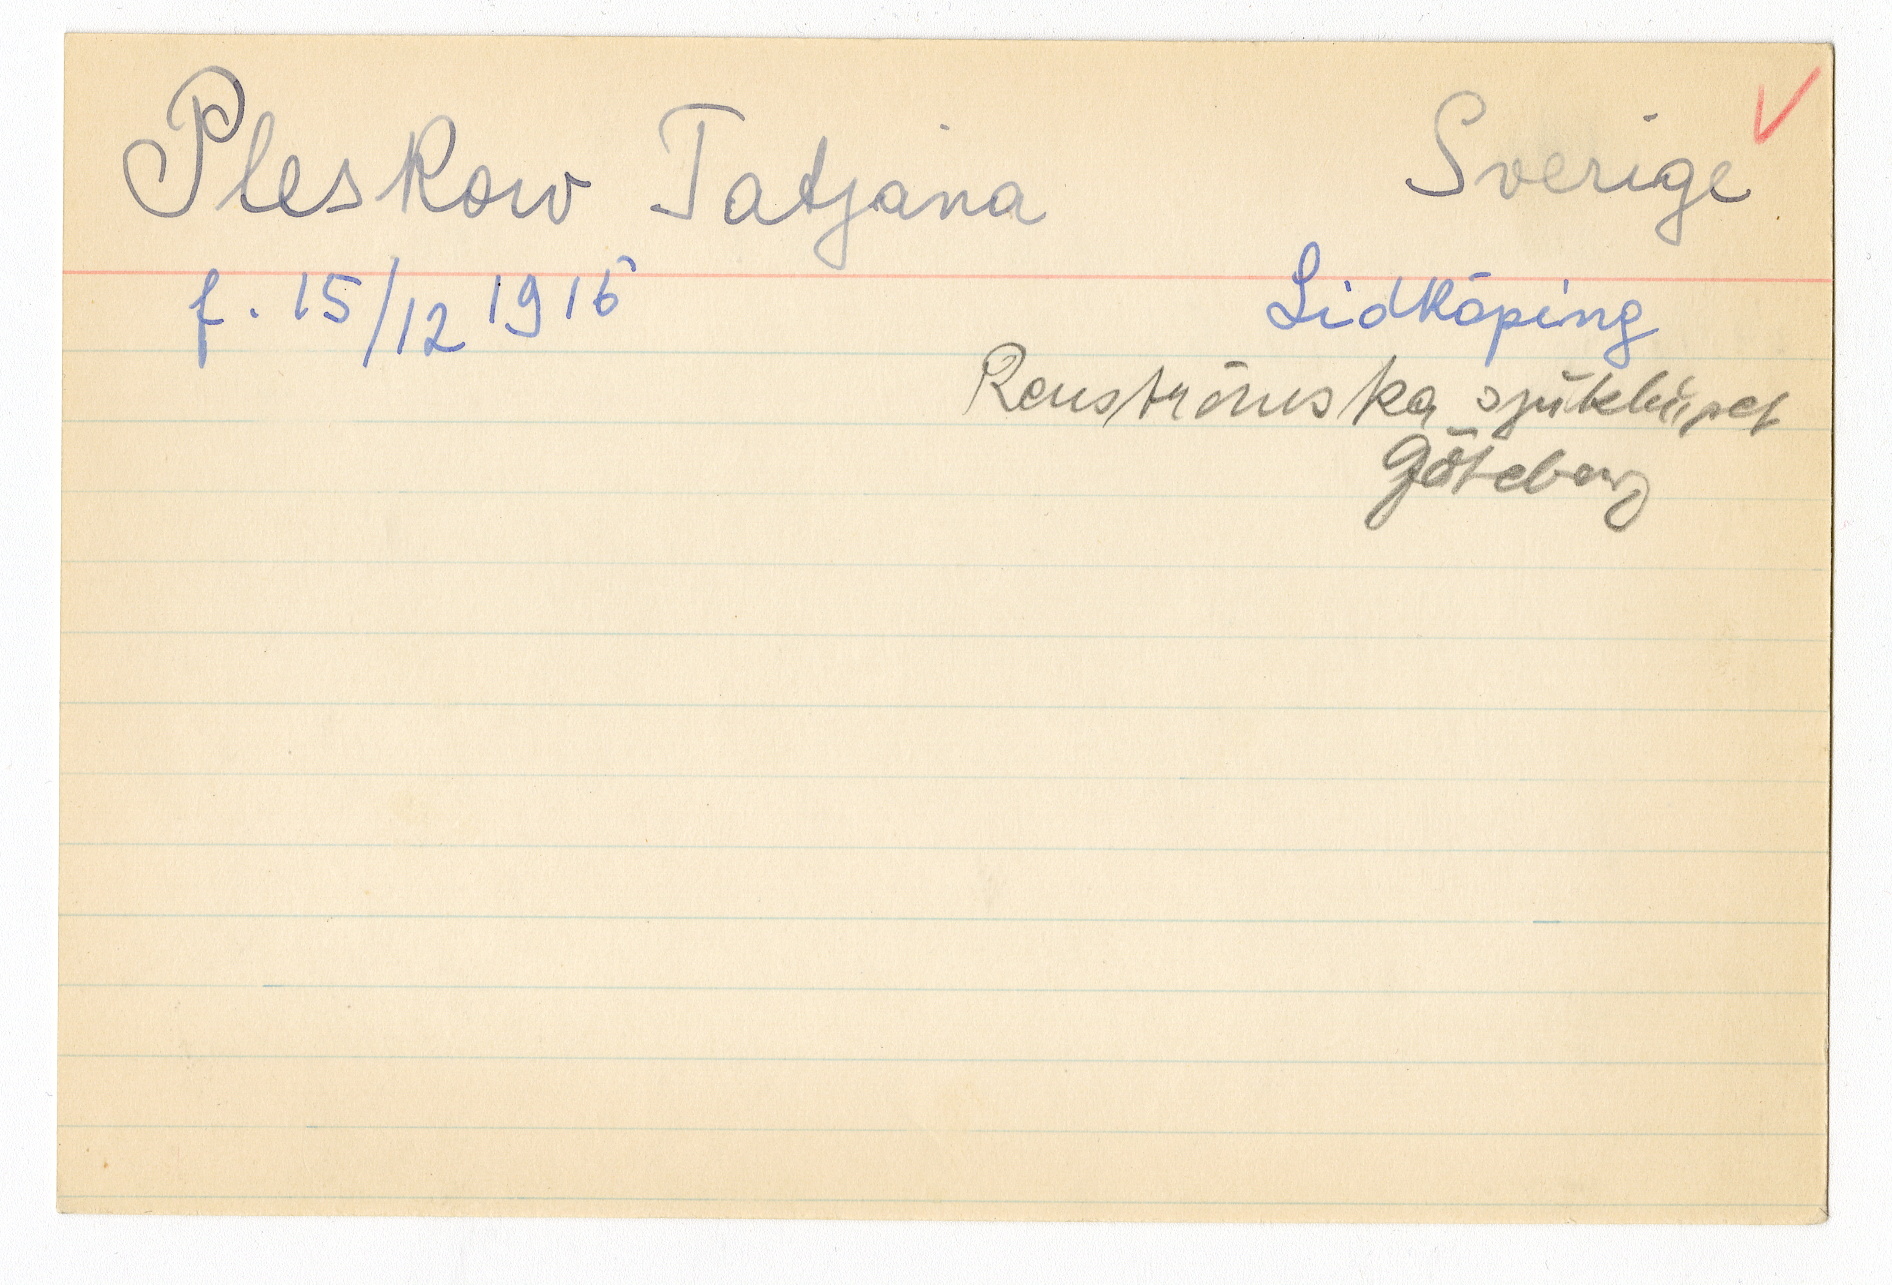 Pleskow Tatjana
Sverige
f. 15/12 1915
Lidköping
Renströmska sjukhuset
Göteborg